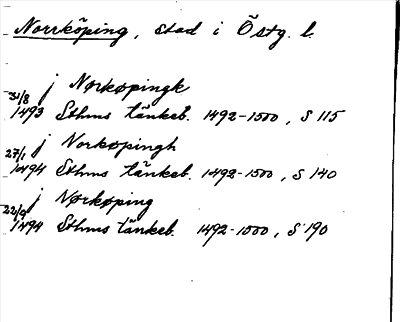 Norrköping, stad i Östg. l.
j Nørkøpingk
31/8 1493 Sthms tänkeb. 1492-1500, S 115
j Norkøpingh
27/1 1494 Sthms tänkeb. 1492-1500, S 140
j Nørkøping
22/9 1494 Sthms tänkeb. 1492-1500, S 190